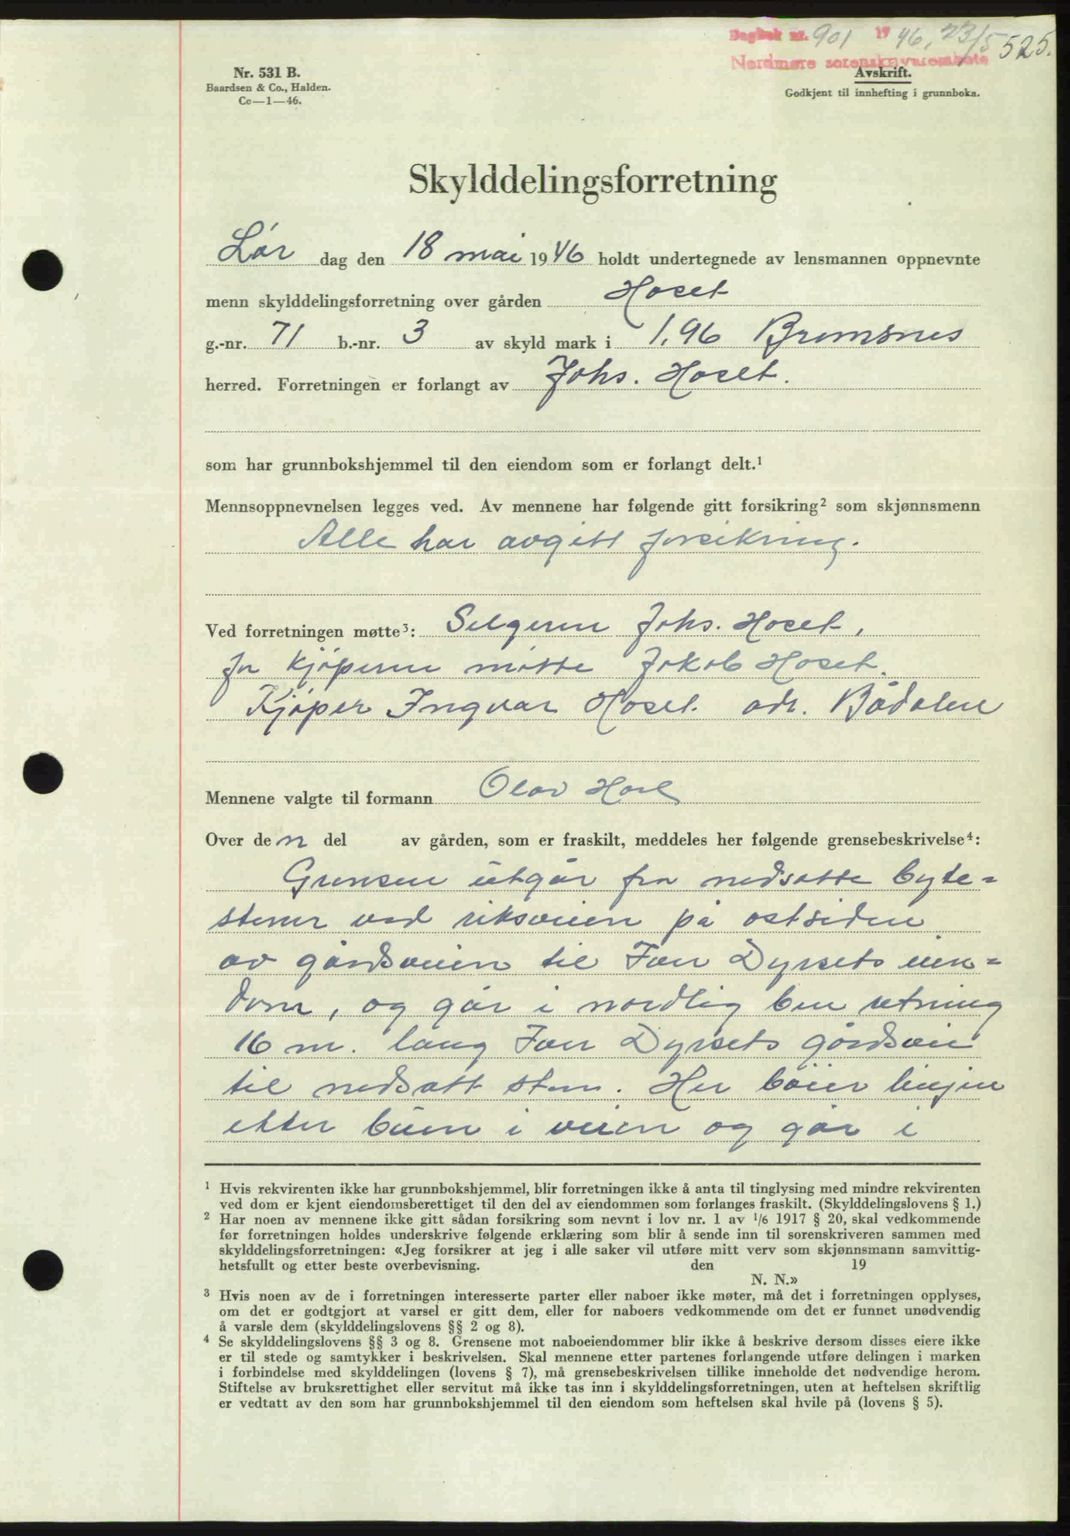 Dagbok nr. 901 1946, 23/5 525.
Nordmøre sorenskriverembete
Nr. 531 B.
Baardsen & Co., Halden.
Cc—1—46.
Avskrift.
Godkjent til innhefting i grunnboka.
Skylddelingsforretning
Lør dag den 18 mai 1946 holdt undertegnede av lensmannen oppnevnte
menn skylddelingsforretning over gården Hoset
g.-nr. 71 b.-nr. 3 av skyld mark i 1,96 Bremsnes
herred. Forretningen er forlangt av Johs. Hoset.
som har grunnbokshjemmel til den eiendom som er forlangt delt.¹
Mennsoppnevnelsen legges ved. Av mennene har følgende gitt forsikring² som skjønnsmenn
Alle har avgitt forsikring.
Ved forretningen møtte³: Selgeren Johs. Hoset,
for kjøperen møtte Jakob Hoset.
Kjøper Ingvar Hoset. adr. Bådalen
Mennene valgte til formann Olav
Over den del av gården, som er fraskilt, meddeles her følgende grensebeskrivelse⁴:
Grensen utgår fra nedsatte byte=
stener ved riksveien på østsiden
av gårdsveien til Iver Dyrsets eien=
dom, og går i nordlig ben retning
16 m. lang Iver Dyrsets gårdsvei
til nedsatt sten. Her bøier linjen
etter bøien i veien og går i
¹ Hvis rekvirenten ikke har grunnbokshjemmel, blir forretningen ikke å anta til tinglysing med mindre rekvirenten
ved dom er kjent eiendomsberettiget til den del av eiendommen som forlanges fraskilt. (Skylddelingslovens § 1.)
² Har noen av mennene ikke gitt sådan forsikring som nevnt i lov nr. 1 av ¹/6 1917 § 20, skal vedkommende
før forretningen holdes underskrive følgende erklæring som blir å sende inn til sorenskriveren sammen med
skylddelingsforretningen: «Jeg forsikrer at jeg i alle saker vil utføre mitt verv som skjønnsmann samvittig-
hetsfullt og etter beste overbevisning. den 19
N. N.»
³ Hvis noen av de i forretningen interesserte parter eller naboer ikke møter, må det i forretningen opplyses,
om det er godtgjort at varsel er gitt dem, eller for naboers vedkommende om det er funnet unødvendig
å varsle dem (skylddelingslovens §§ 2 og 8).
⁴ Se skylddelingslovens §§ 3 og 8. Grensene mot naboeiendommer blir ikke å beskrive dersom disses eiere ikke
er til stede og samtykker i beskrivelsen. Skal mennene etter partenes forlangende utføre delingen i marken
i forbindelse med skylddelingen (lovens § 7), må grensebeskrivelsen tillike inneholde det nødvendige herom.
Stiftelse av bruksrettighet eller servitut må ikke tas inn i skylddelingsforretningen, uten at heftelsen skriftlig
er vedtatt av den som har grunnbokshjemmel til den eiendom som heftelsen skal hvile på (lovens § 5).